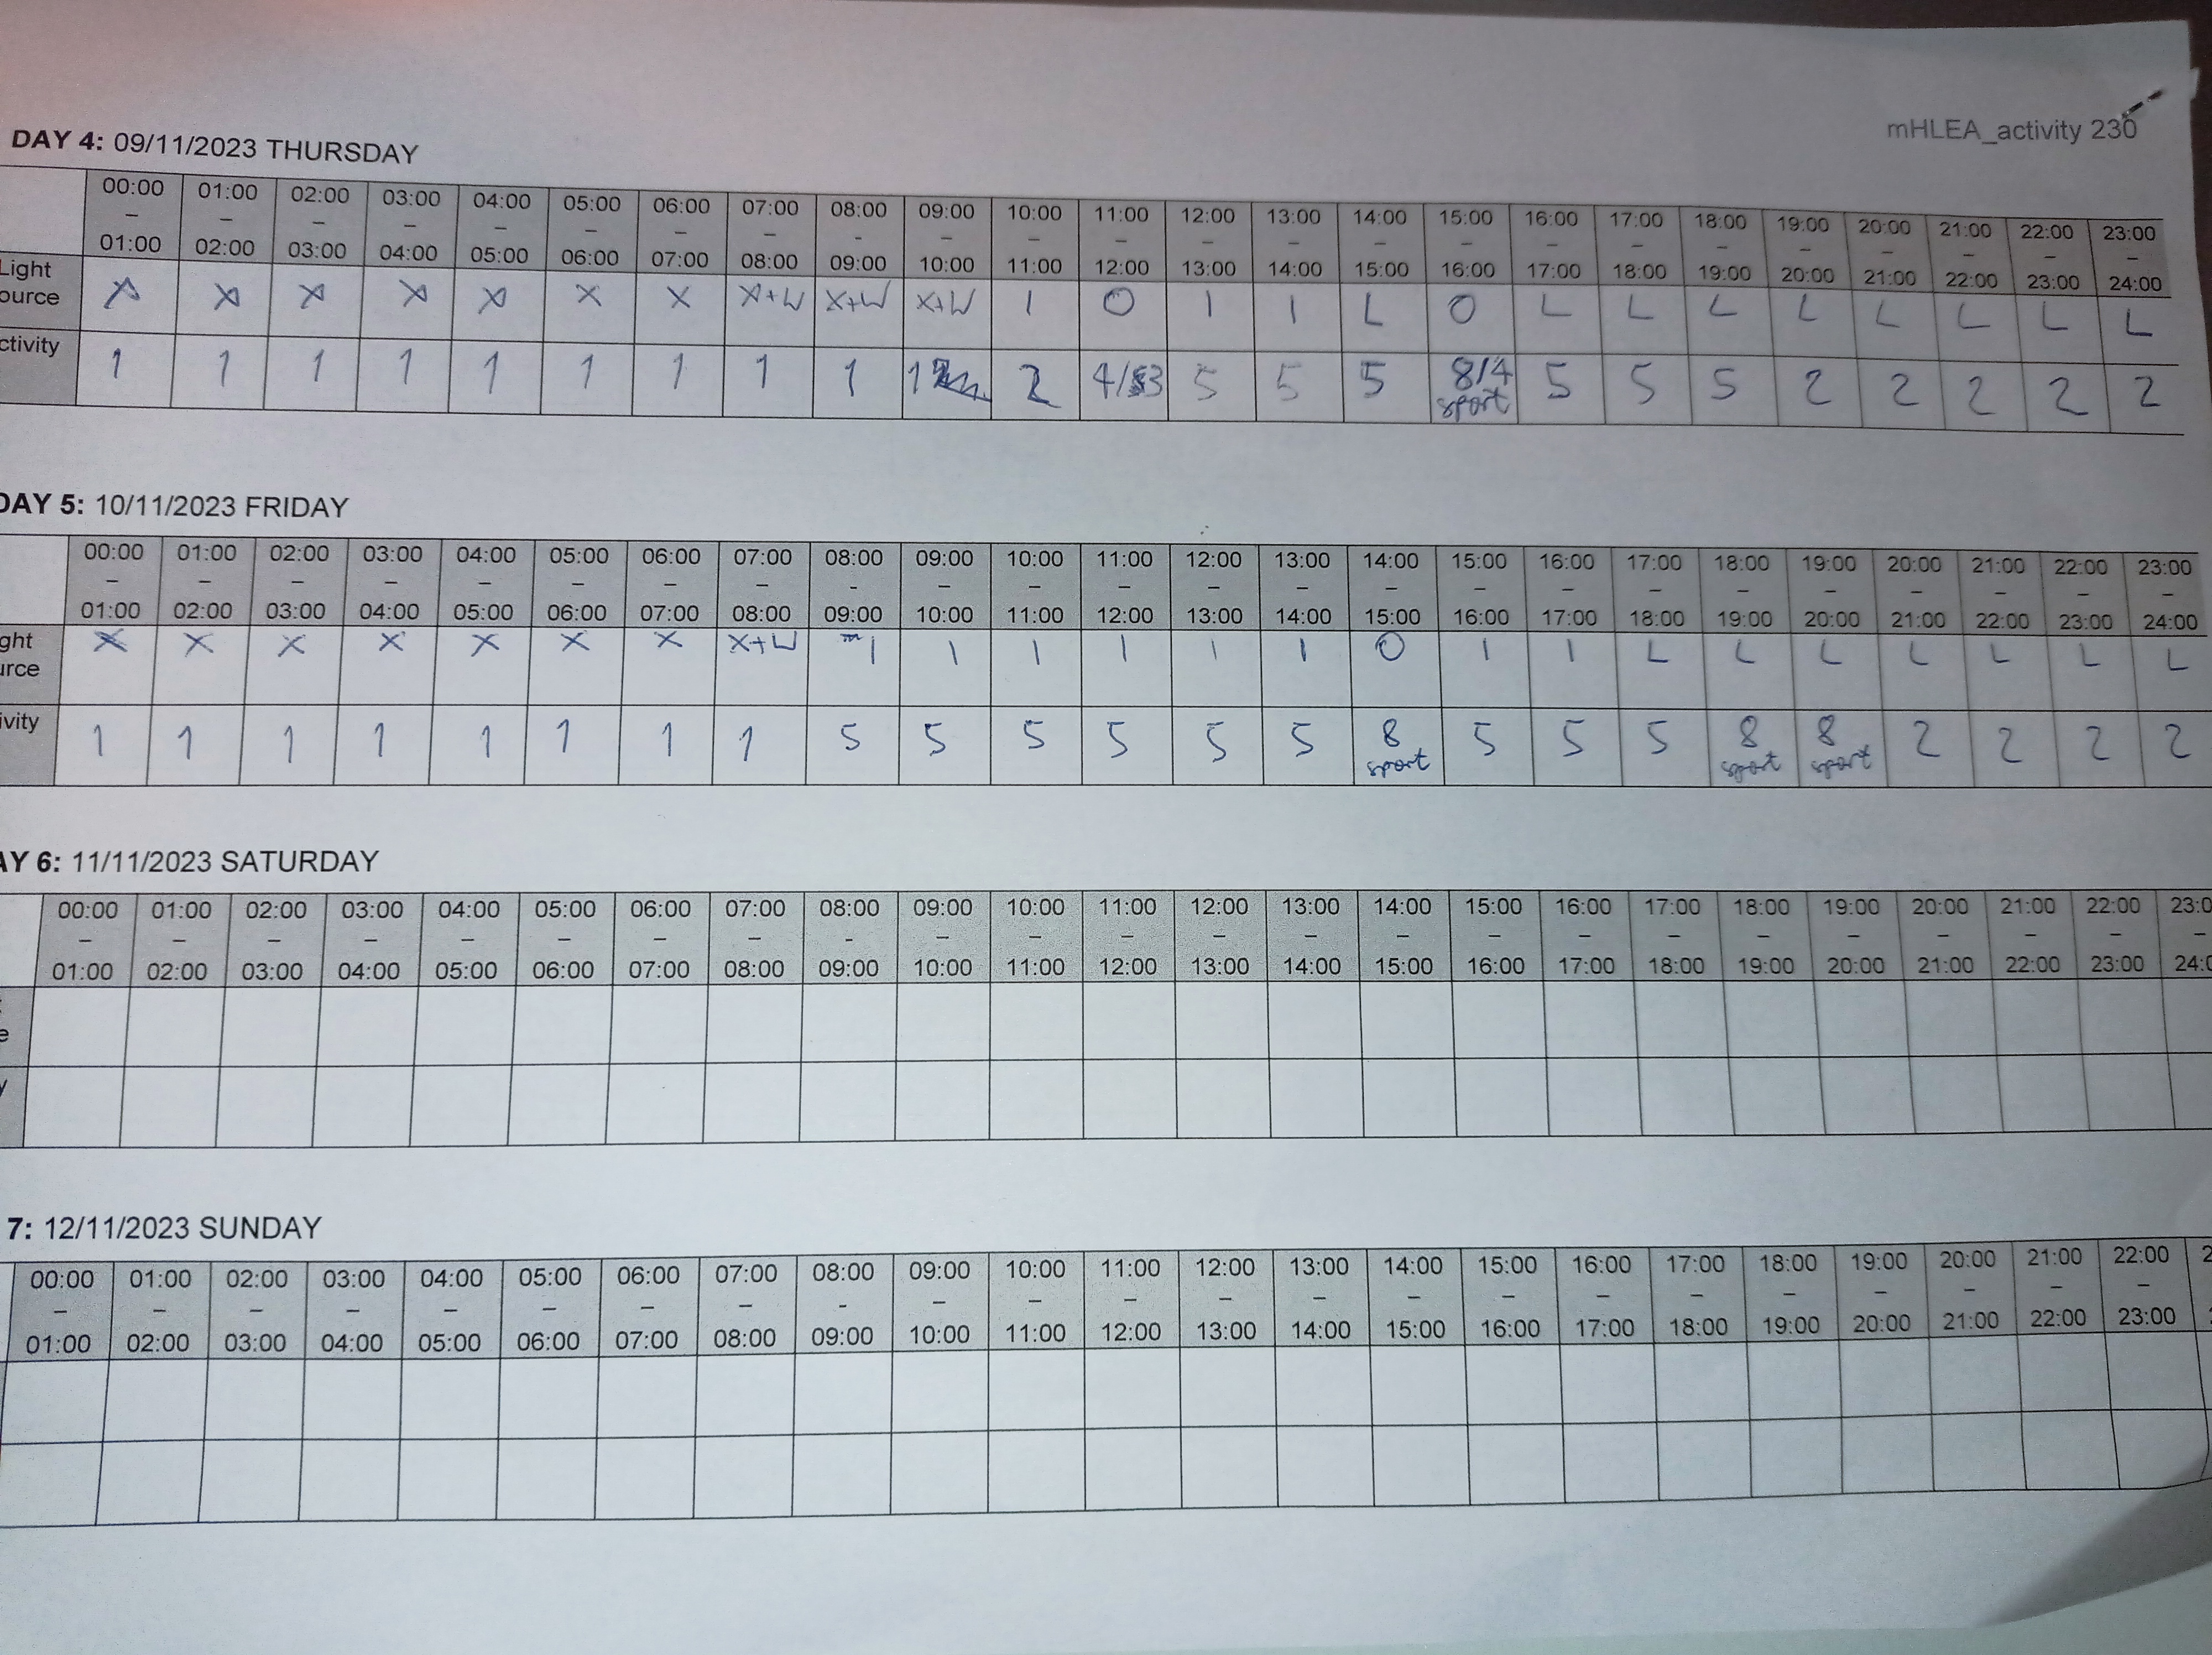 mHLEA_activity 230
DAY 4: 09/11/2023 THURSDAY
00:00 – 01:00 01:00 – 02:00 02:00 – 03:00 03:00 – 04:00 04:00 – 05:00 05:00 – 06:00 06:00 – 07:00 07:00 – 08:00 08:00 - 09:00 09:00 – 10:00 10:00 – 11:00 11:00 – 12:00 12:00 – 13:00 13:00 – 14:00 14:00 – 15:00 15:00 – 16:00 16:00 – 17:00 17:00 – 18:00 18:00 – 19:00 19:00 – 20:00 20:00 – 21:00 21:00 – 22:00 22:00 – 23:00 23:00 – 24:00
Light ource X X X X X X X X+W X+W X+W I O I I L O L L L L L L L L
ctivity 1 1 1 1 1 1 1 1 1 1 2 4/3 5 5 5 8/4 sport 5 5 5 2 2 2 2 2
DAY 5: 10/11/2023 FRIDAY
00:00 – 01:00 01:00 – 02:00 02:00 – 03:00 03:00 – 04:00 04:00 – 05:00 05:00 – 06:00 06:00 – 07:00 07:00 – 08:00 08:00 - 09:00 09:00 – 10:00 10:00 – 11:00 11:00 – 12:00 12:00 – 13:00 13:00 – 14:00 14:00 – 15:00 15:00 – 16:00 16:00 – 17:00 17:00 – 18:00 18:00 – 19:00 19:00 – 20:00 20:00 – 21:00 21:00 – 22:00 22:00 – 23:00 23:00 – 24:00
ght urce X X X X X X X X+W I I I I I I O I I L L L L L L L
ivity 1 1 1 1 1 1 1 1 5 5 5 5 5 5 8 sport 5 5 5 8 sport 8 sport 2 2 2 2
AY 6: 11/11/2023 SATURDAY
00:00 – 01:00 01:00 – 02:00 02:00 – 03:00 03:00 – 04:00 04:00 – 05:00 05:00 – 06:00 06:00 – 07:00 07:00 – 08:00 08:00 - 09:00 09:00 – 10:00 10:00 – 11:00 11:00 – 12:00 12:00 – 13:00 13:00 – 14:00 14:00 – 15:00 15:00 – 16:00 16:00 – 17:00 17:00 – 18:00 18:00 – 19:00 19:00 – 20:00 20:00 – 21:00 21:00 – 22:00 22:00 – 23:00 23:0 24:0
e
y
7: 12/11/2023 SUNDAY
00:00 – 01:00 01:00 – 02:00 02:00 – 03:00 03:00 – 04:00 04:00 – 05:00 05:00 – 06:00 06:00 – 07:00 07:00 – 08:00 08:00 - 09:00 09:00 – 10:00 10:00 – 11:00 11:00 – 12:00 12:00 – 13:00 13:00 – 14:00 14:00 – 15:00 15:00 – 16:00 16:00 – 17:00 17:00 – 18:00 18:00 – 19:00 19:00 – 20:00 20:00 – 21:00 21:00 – 22:00 22:00 – 23:00 2